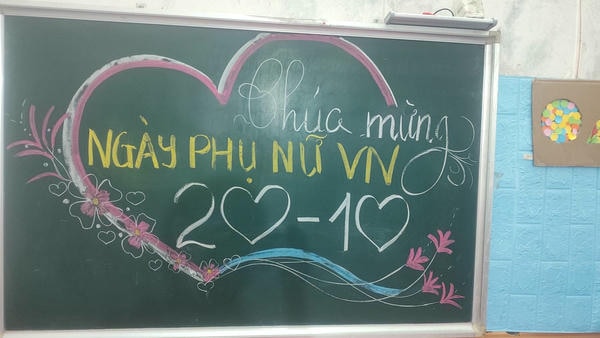 Chúa mừng
NGÀY PHỤ NỮ VN
20-10